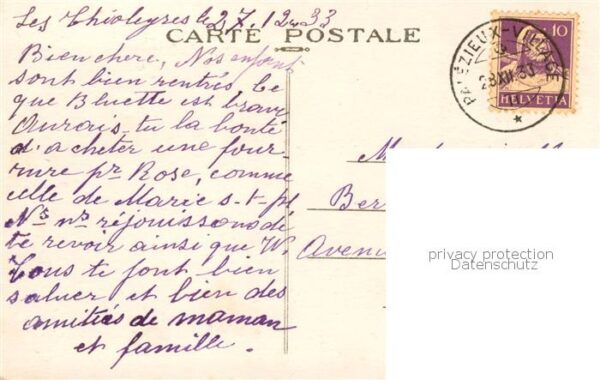 Les Thioleyres le 27.12.33
CARTE POSTALE
Bien chère, Nos enfants
sont bien rentrés. Ce
que Bluette est brave
Aurais-tu la bonté
d'acheter une four-
rure pr Rose, comme
celle de Marie s-t-pl
Ns ns réjouissons de
te revoir ainsi que W.
Tous te font bien
saluer et bien des
amitiés de maman
et famille.
PALÉZIEUX-VILLAGE
28.XII.33
10
HELVETIA
Ber
Avenu
privacy protection
Datenschutz